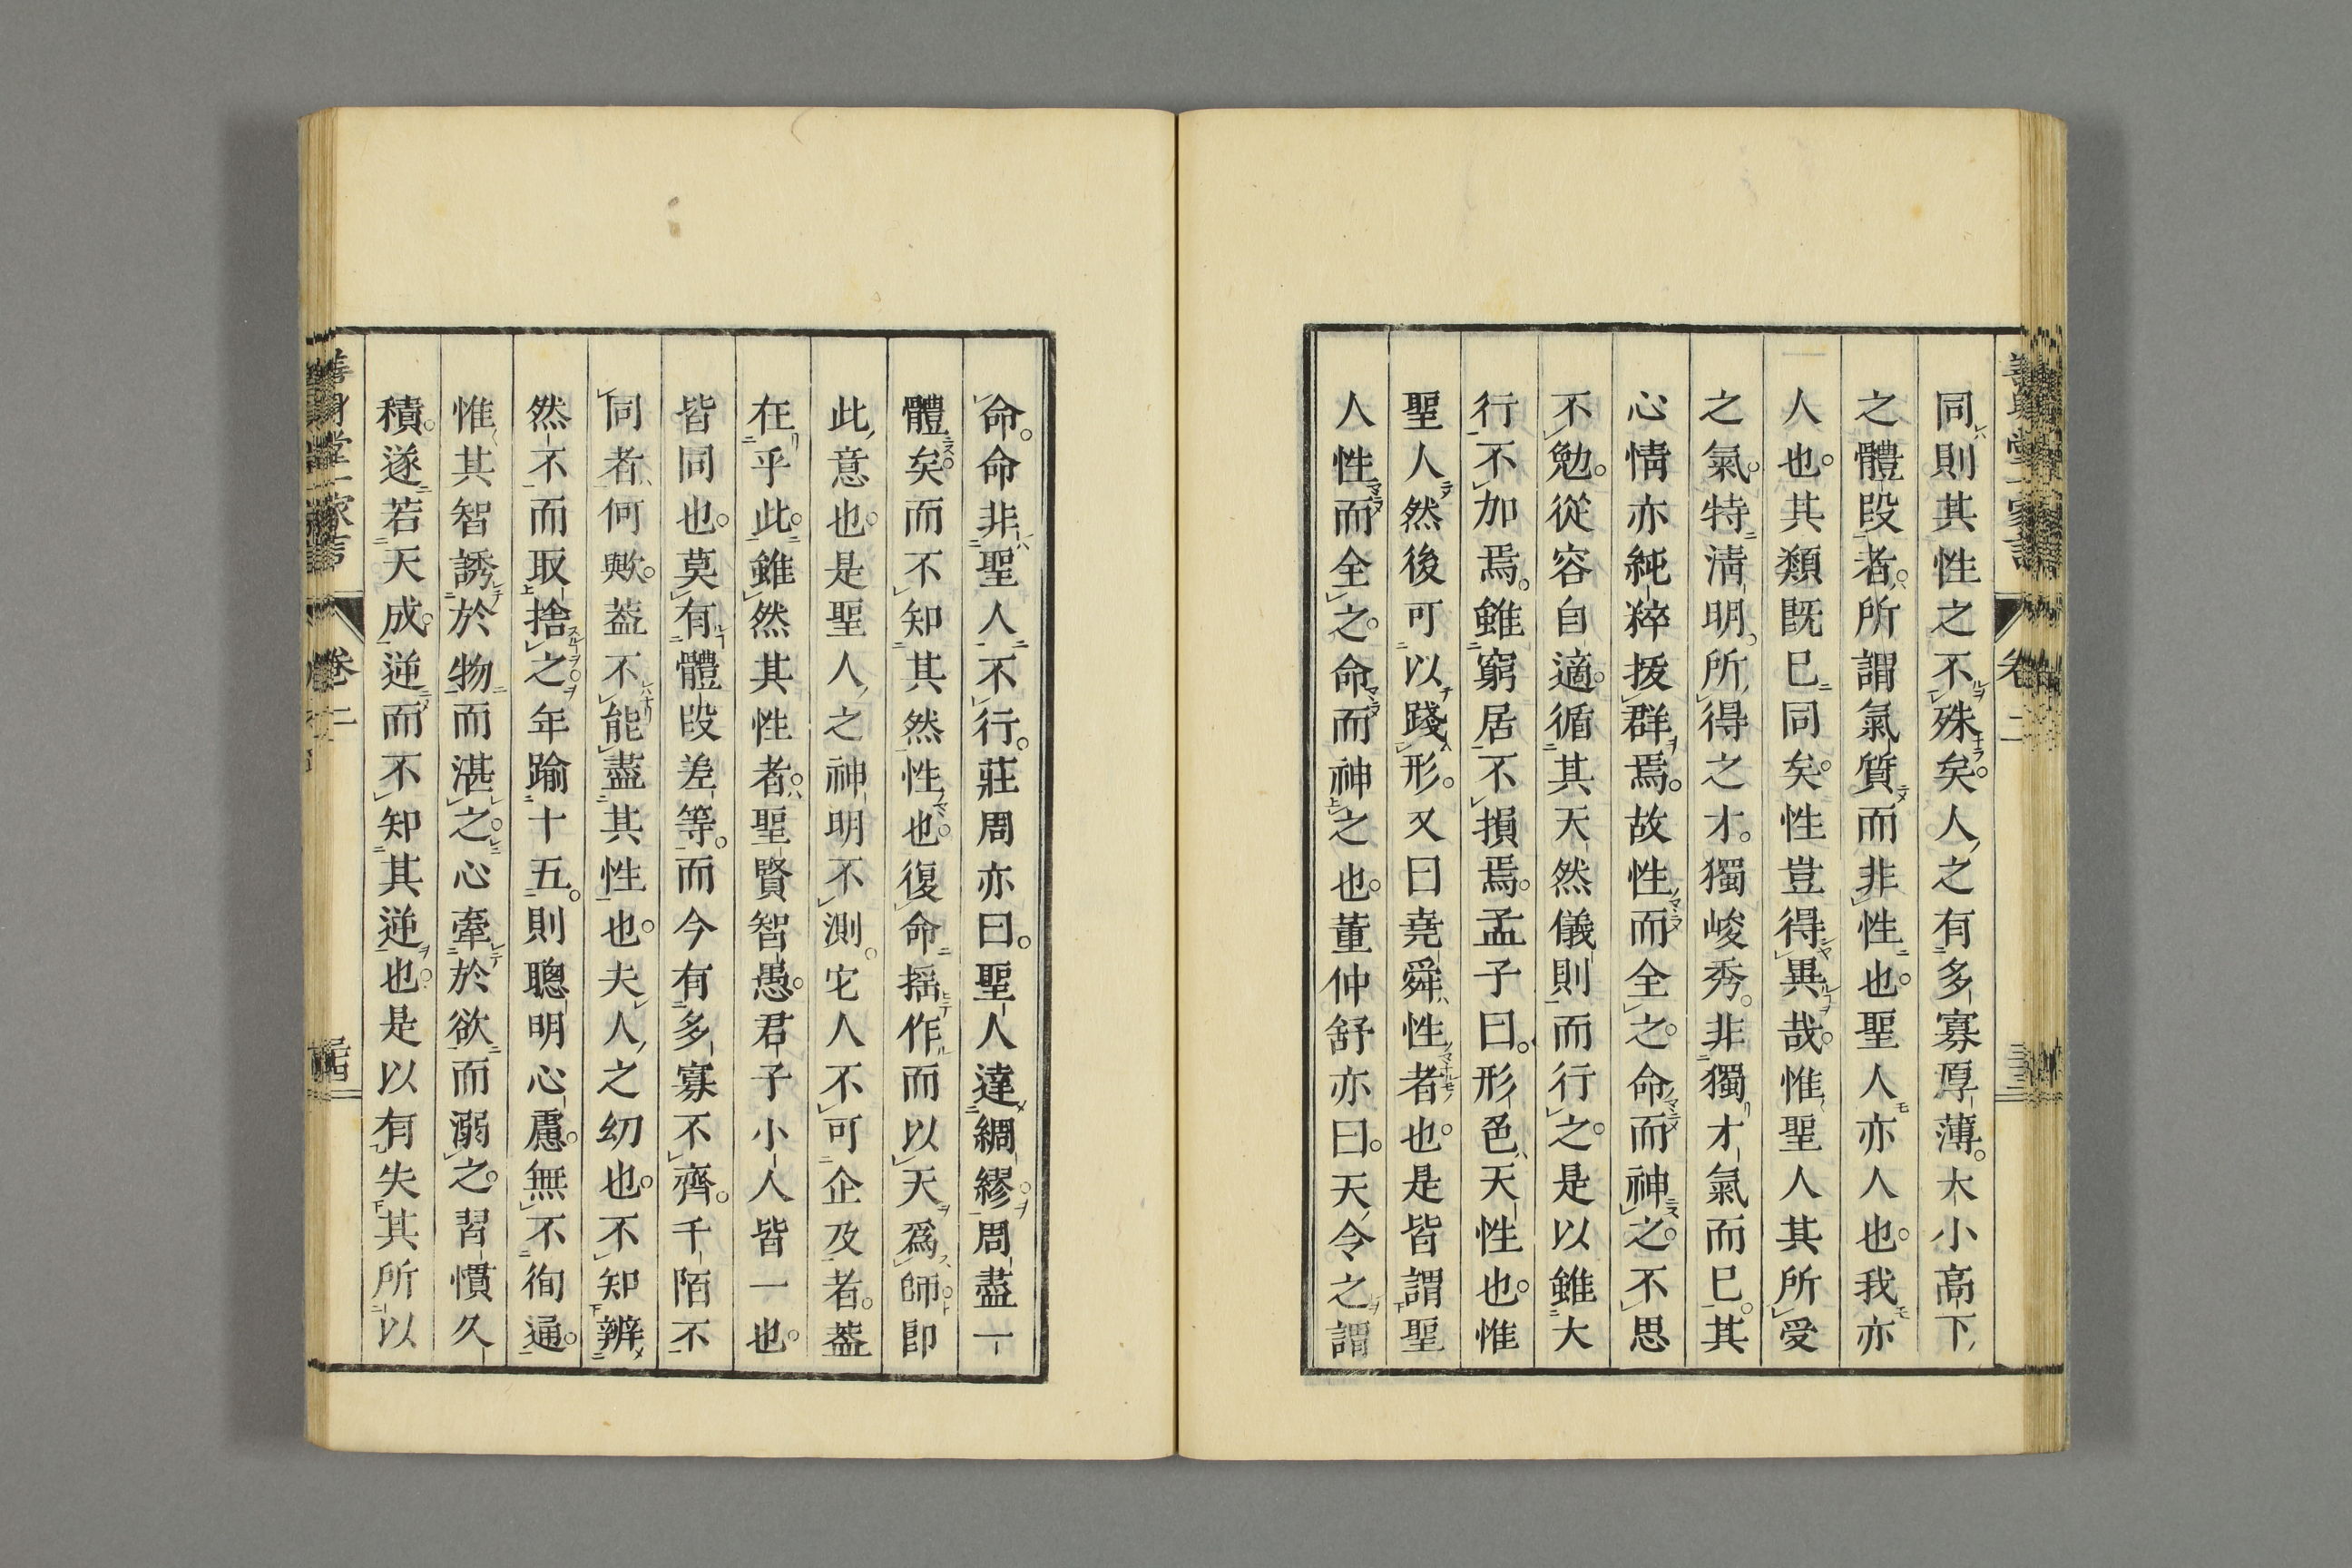 同則其性之不殊矣人之有多寡厚薄大小高下
之體段者所謂氣質而非性也聖人亦人也我亦
人也其類既已同矣性豈得異哉惟聖人其所受
之氣特清明所得之才獨峻秀非獨才氣而已其
心情亦純粹拔群焉故性而全之命而神之不思
不勉從容自適循其天然儀則而行之是以雖大
行不加焉雖窮居不損焉孟子曰形色天性也惟
聖人然後可以踐形又曰堯舜性者也是皆謂聖
人性而全之命而神之也董仲舒亦曰天令之謂
命命非聖人不行莊周亦曰聖人達綢繆周盡一
體矣而不知其然性也復命搖作而以天爲師卽
此意也是聖人之神明不測它人不可企及者蓋
在乎此雖然其性者聖賢智愚君子小人皆一也
皆同也莫有體段差等而今有多寡不齊千陌不
同者何歟蓋不能盡其性也夫人之幼也不知辨
然不而取捨之年踰十五則聰明心慮無不徇通
惟其智誘於物而湛之心牽於欲而溺之習慣久
積遂若天成逆而不知其逆也是以有失其所以
卷二